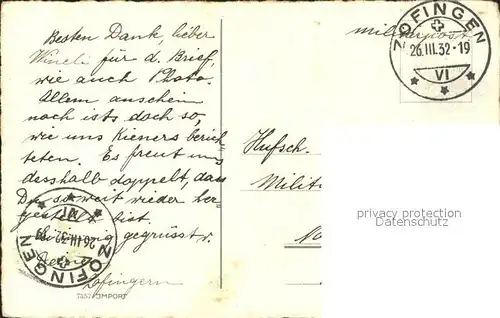 Besten Dank, lieber
für d. Brief,
wie auch Photo.
Allem anschein
noch ists doch so,
wie uns Kieners berich-
teten. Es freut uns
desshalb doppelt, dass
Du so weit wieder her-
gestellt bist
gegrüsst v.
Zofingern
7357 IMPORT
ZOFINGEN
26.III.32-19
VI
Militärpost
ZOFINGEN
26.III.32-19
VI
Hufsch.
Militä
privacy protection
Datenschutz